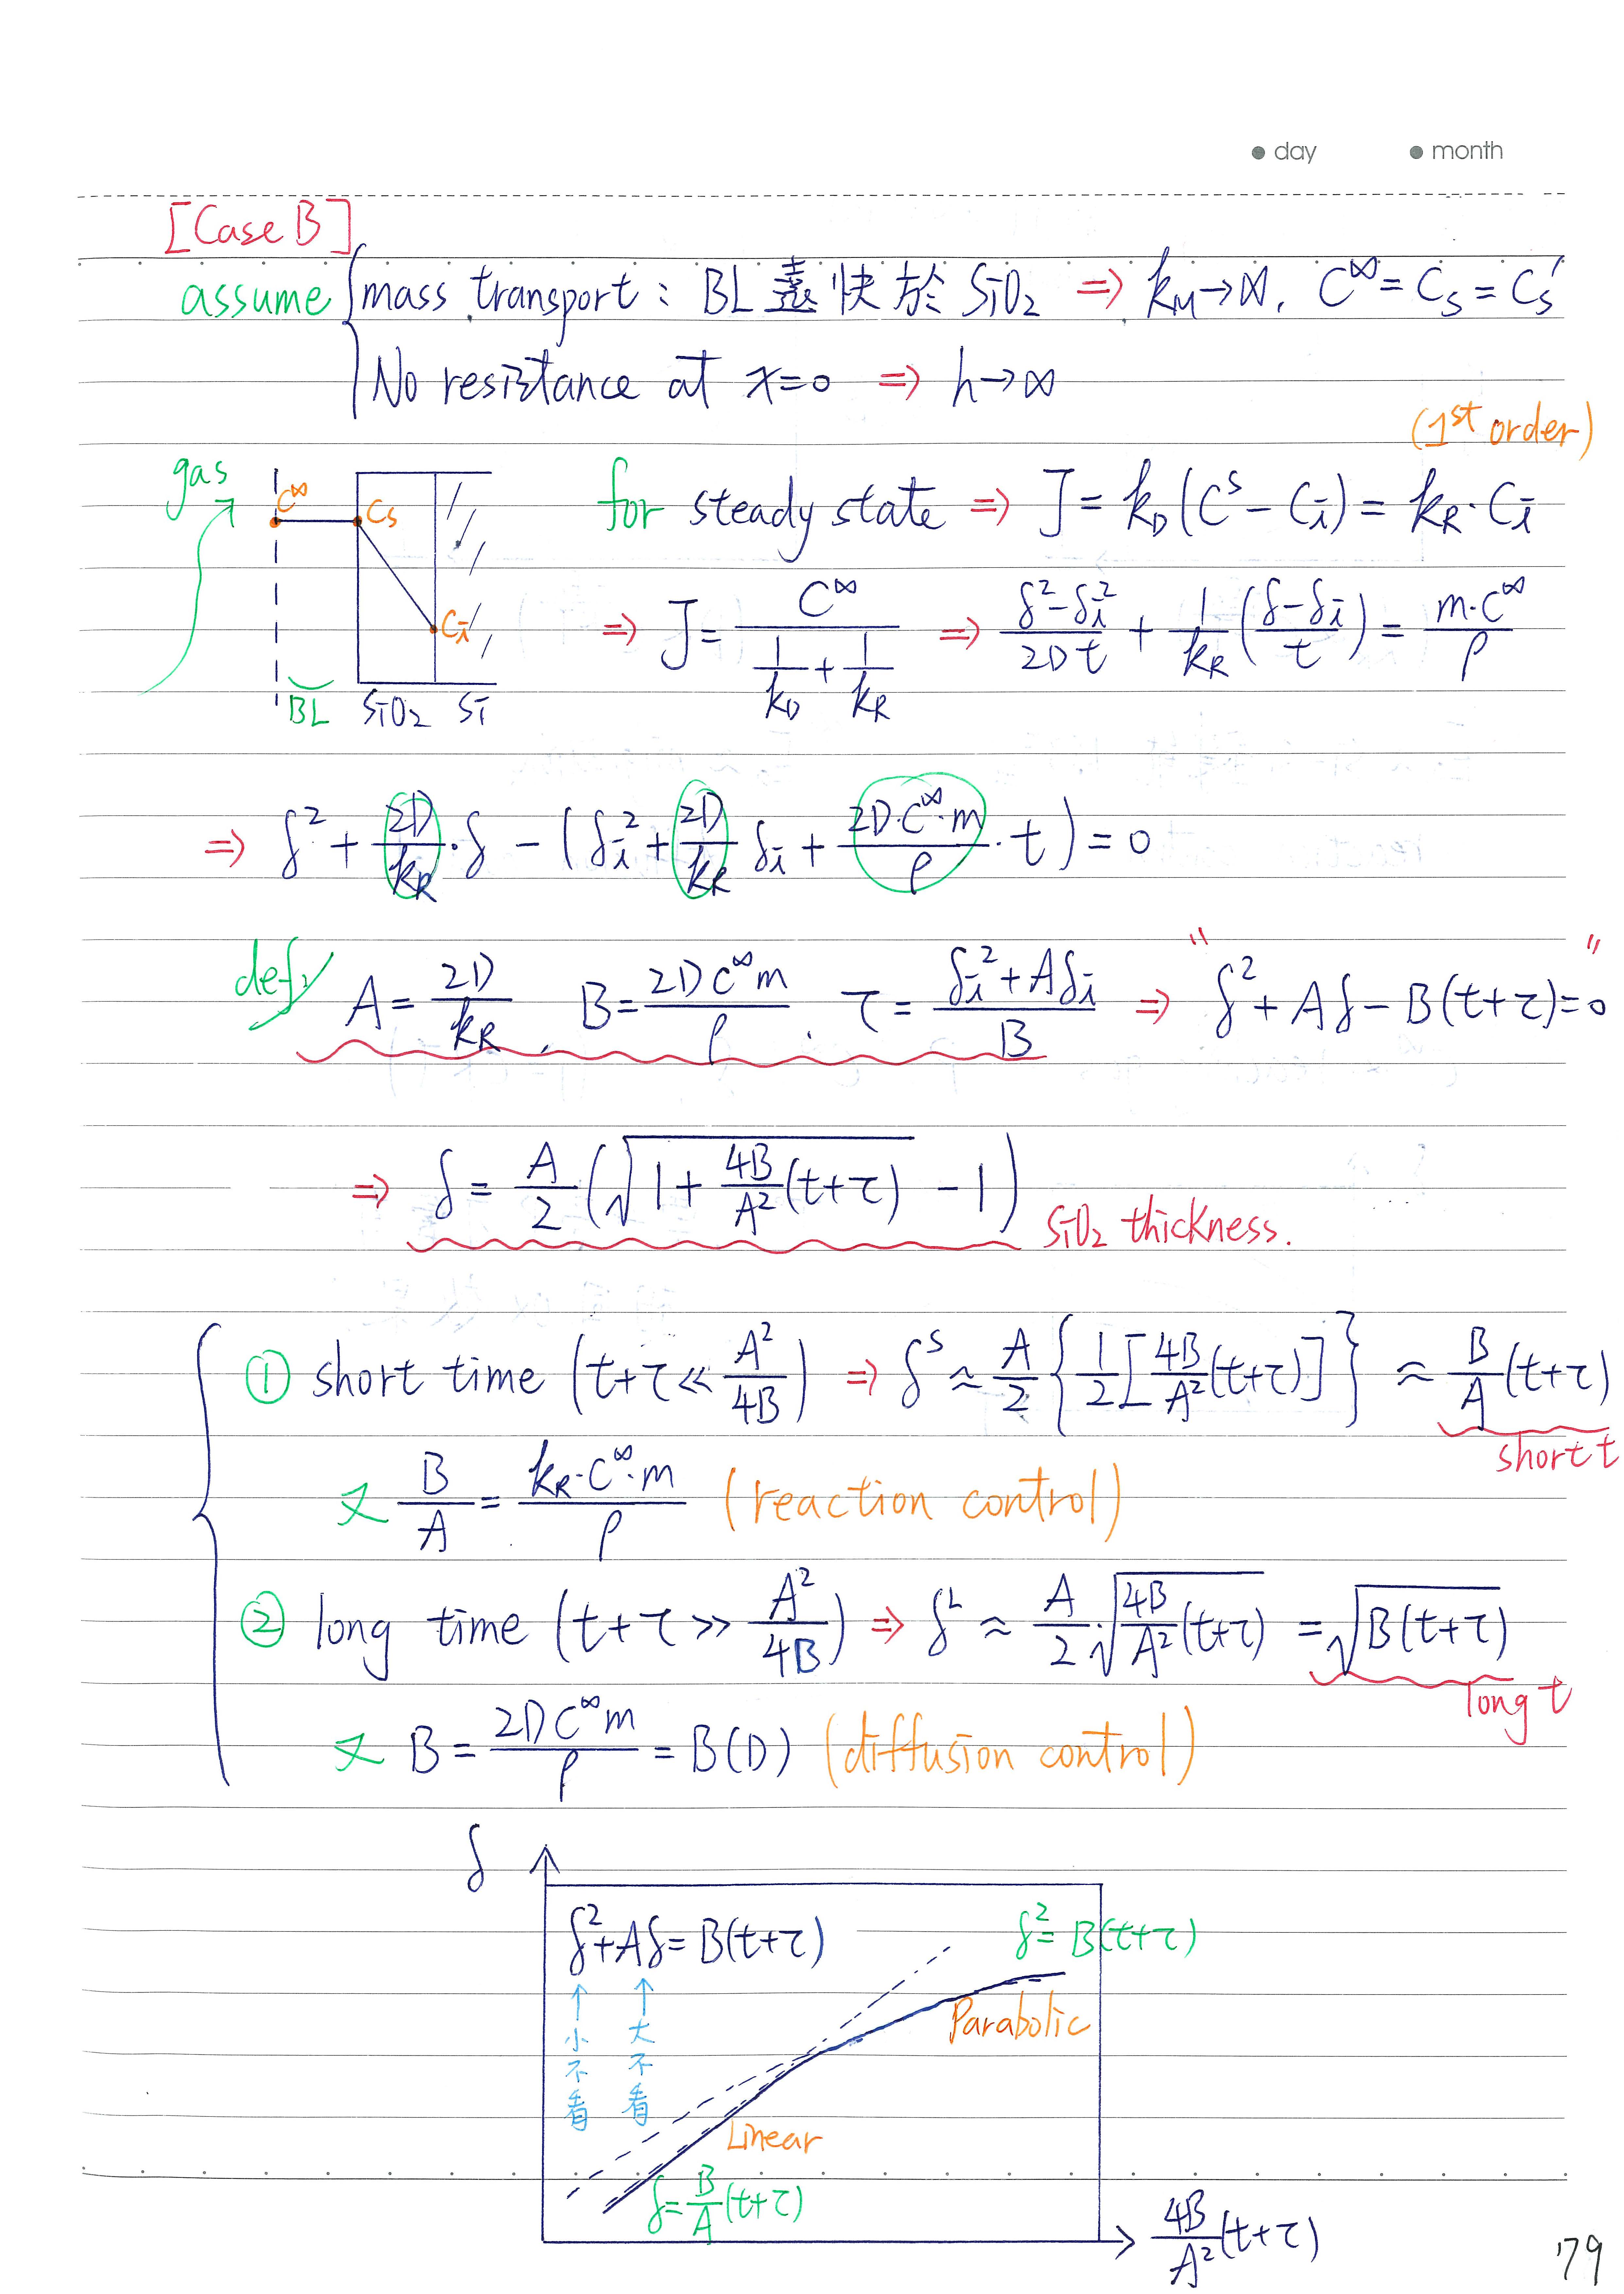 ● day ● month
[Case B]
assume { mass transport : BL 遠快於 SiO₂ ⇒ k_M→∞, C^∞ = C_S = C_S'
No resistance at x=0 ⇒ h→∞
(1st order)
gas
C^∞ C_S C_i
BL SiO₂ Si
for steady state ⇒ J = k_D(C^S − C_i) = k_R·C_i
⇒ J = C^∞ / (1/k_D + 1/k_R) ⇒ (δ² − δ_i²)/(2Dt) + (1/k_R)((δ − δ_i)/t) = m·C^∞/ρ
⇒ δ² + (2D/k_R)·δ − (δ_i² + (2D/k_R)δ_i + (2D·C^∞·m/ρ)·t) = 0
def, A = 2D/k_R, B = 2DC^∞m/ρ, τ = (δ_i² + Aδ_i)/B ⇒ "δ² + Aδ − B(t+τ) = 0"
⇒ δ = (A/2)(√(1 + (4B/A²)(t+τ)) − 1) SiO₂ thickness.
① short time (t+τ ≪ A²/4B) ⇒ δ^S ≈ (A/2){(1/2)[(4B/A²)(t+τ)]} ≈ (B/A)(t+τ)
short t
又 B/A = k_R·C^∞·m/ρ (reaction control)
② long time (t+τ >> A²/4B) ⇒ δ^L ≈ (A/2)·√((4B/A²)(t+τ)) = √(B(t+τ))
long t
又 B = 2DC^∞m/ρ = B(D) (diffusion control)
δ
δ²+Aδ = B(t+τ)
δ² = B(t+τ)
↑小不看 ↑大不看
Parabolic
Linear
δ = (B/A)(t+τ)
(4B/A²)(t+τ)
79